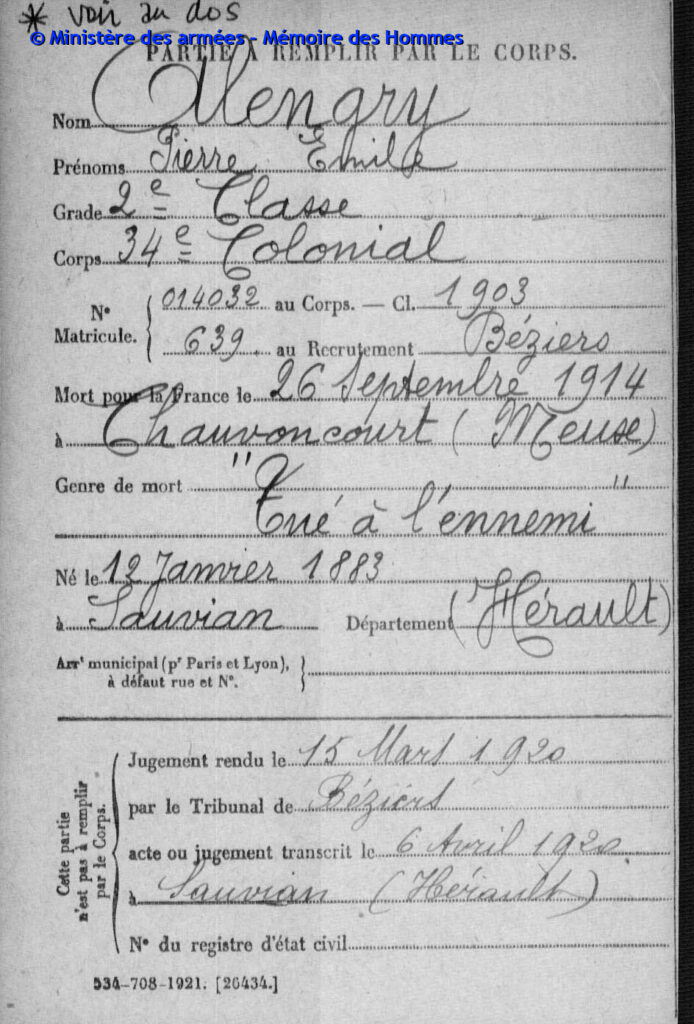 * voir au dos
© Ministère des armées - Mémoire des Hommes
PARTIE A REMPLIR PAR LE CORPS.
Nom Alengry
Prénoms Pierre Emile
Grade 2e Classe
Corps 34e Colonial
N° Matricule. 014032 au Corps. — Cl. 1903
639. au Recrutement Béziers
Mort pour la France le 26 Septembre 1914
à Chauvoncourt (Meuse)
Genre de mort "
Tué à l'ennemi "
Né le 12 Janvier 1883
à Sauvian Département (Hérault)
Arrt municipal (pr Paris et Lyon),
à défaut rue et N°.
Cette partie n'est pas à remplir par le Corps.
Jugement rendu le 15 Mars 1920
par le Tribunal de Béziers
acte ou jugement transcrit le 6 Avril 1920
à Sauvian (Hérault)
N° du registre d'état civil
534-708-1921. [26434.]